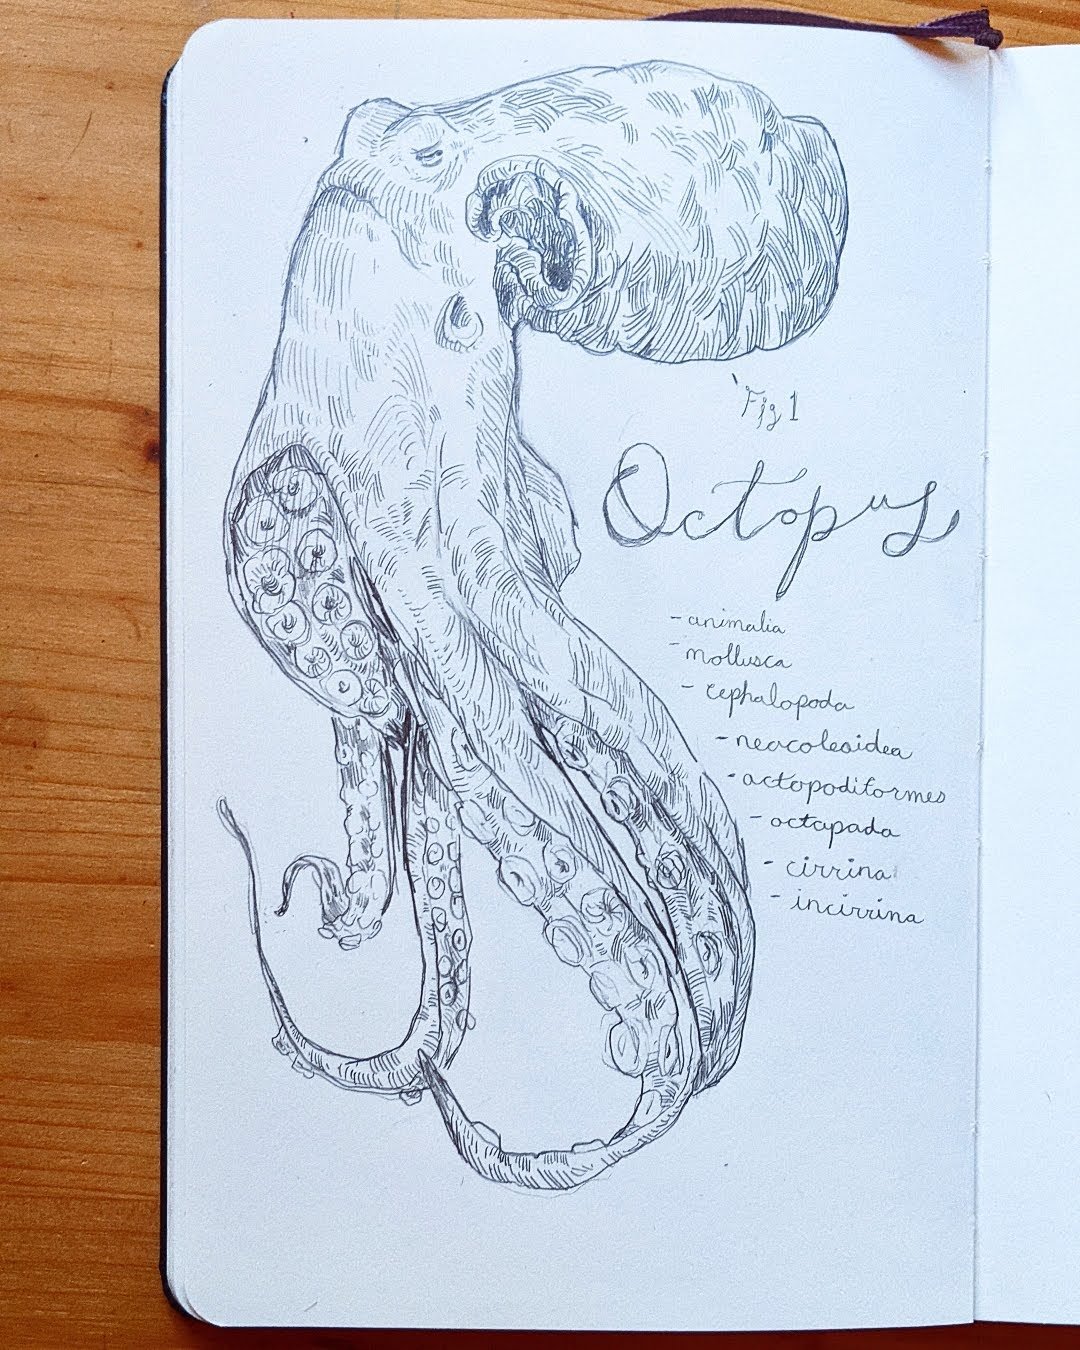 Fig 1
Octopus
- animalia
- mollusca
- cephalopoda
- neocoleoidea
- octopodiformes
- octopoda
- cirrina
- incirrina